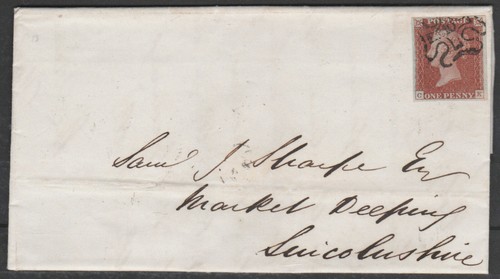 POSTAGE
ONE PENNY
Saml J. Sharpe Esq
Market Deeping
Lincolnshire